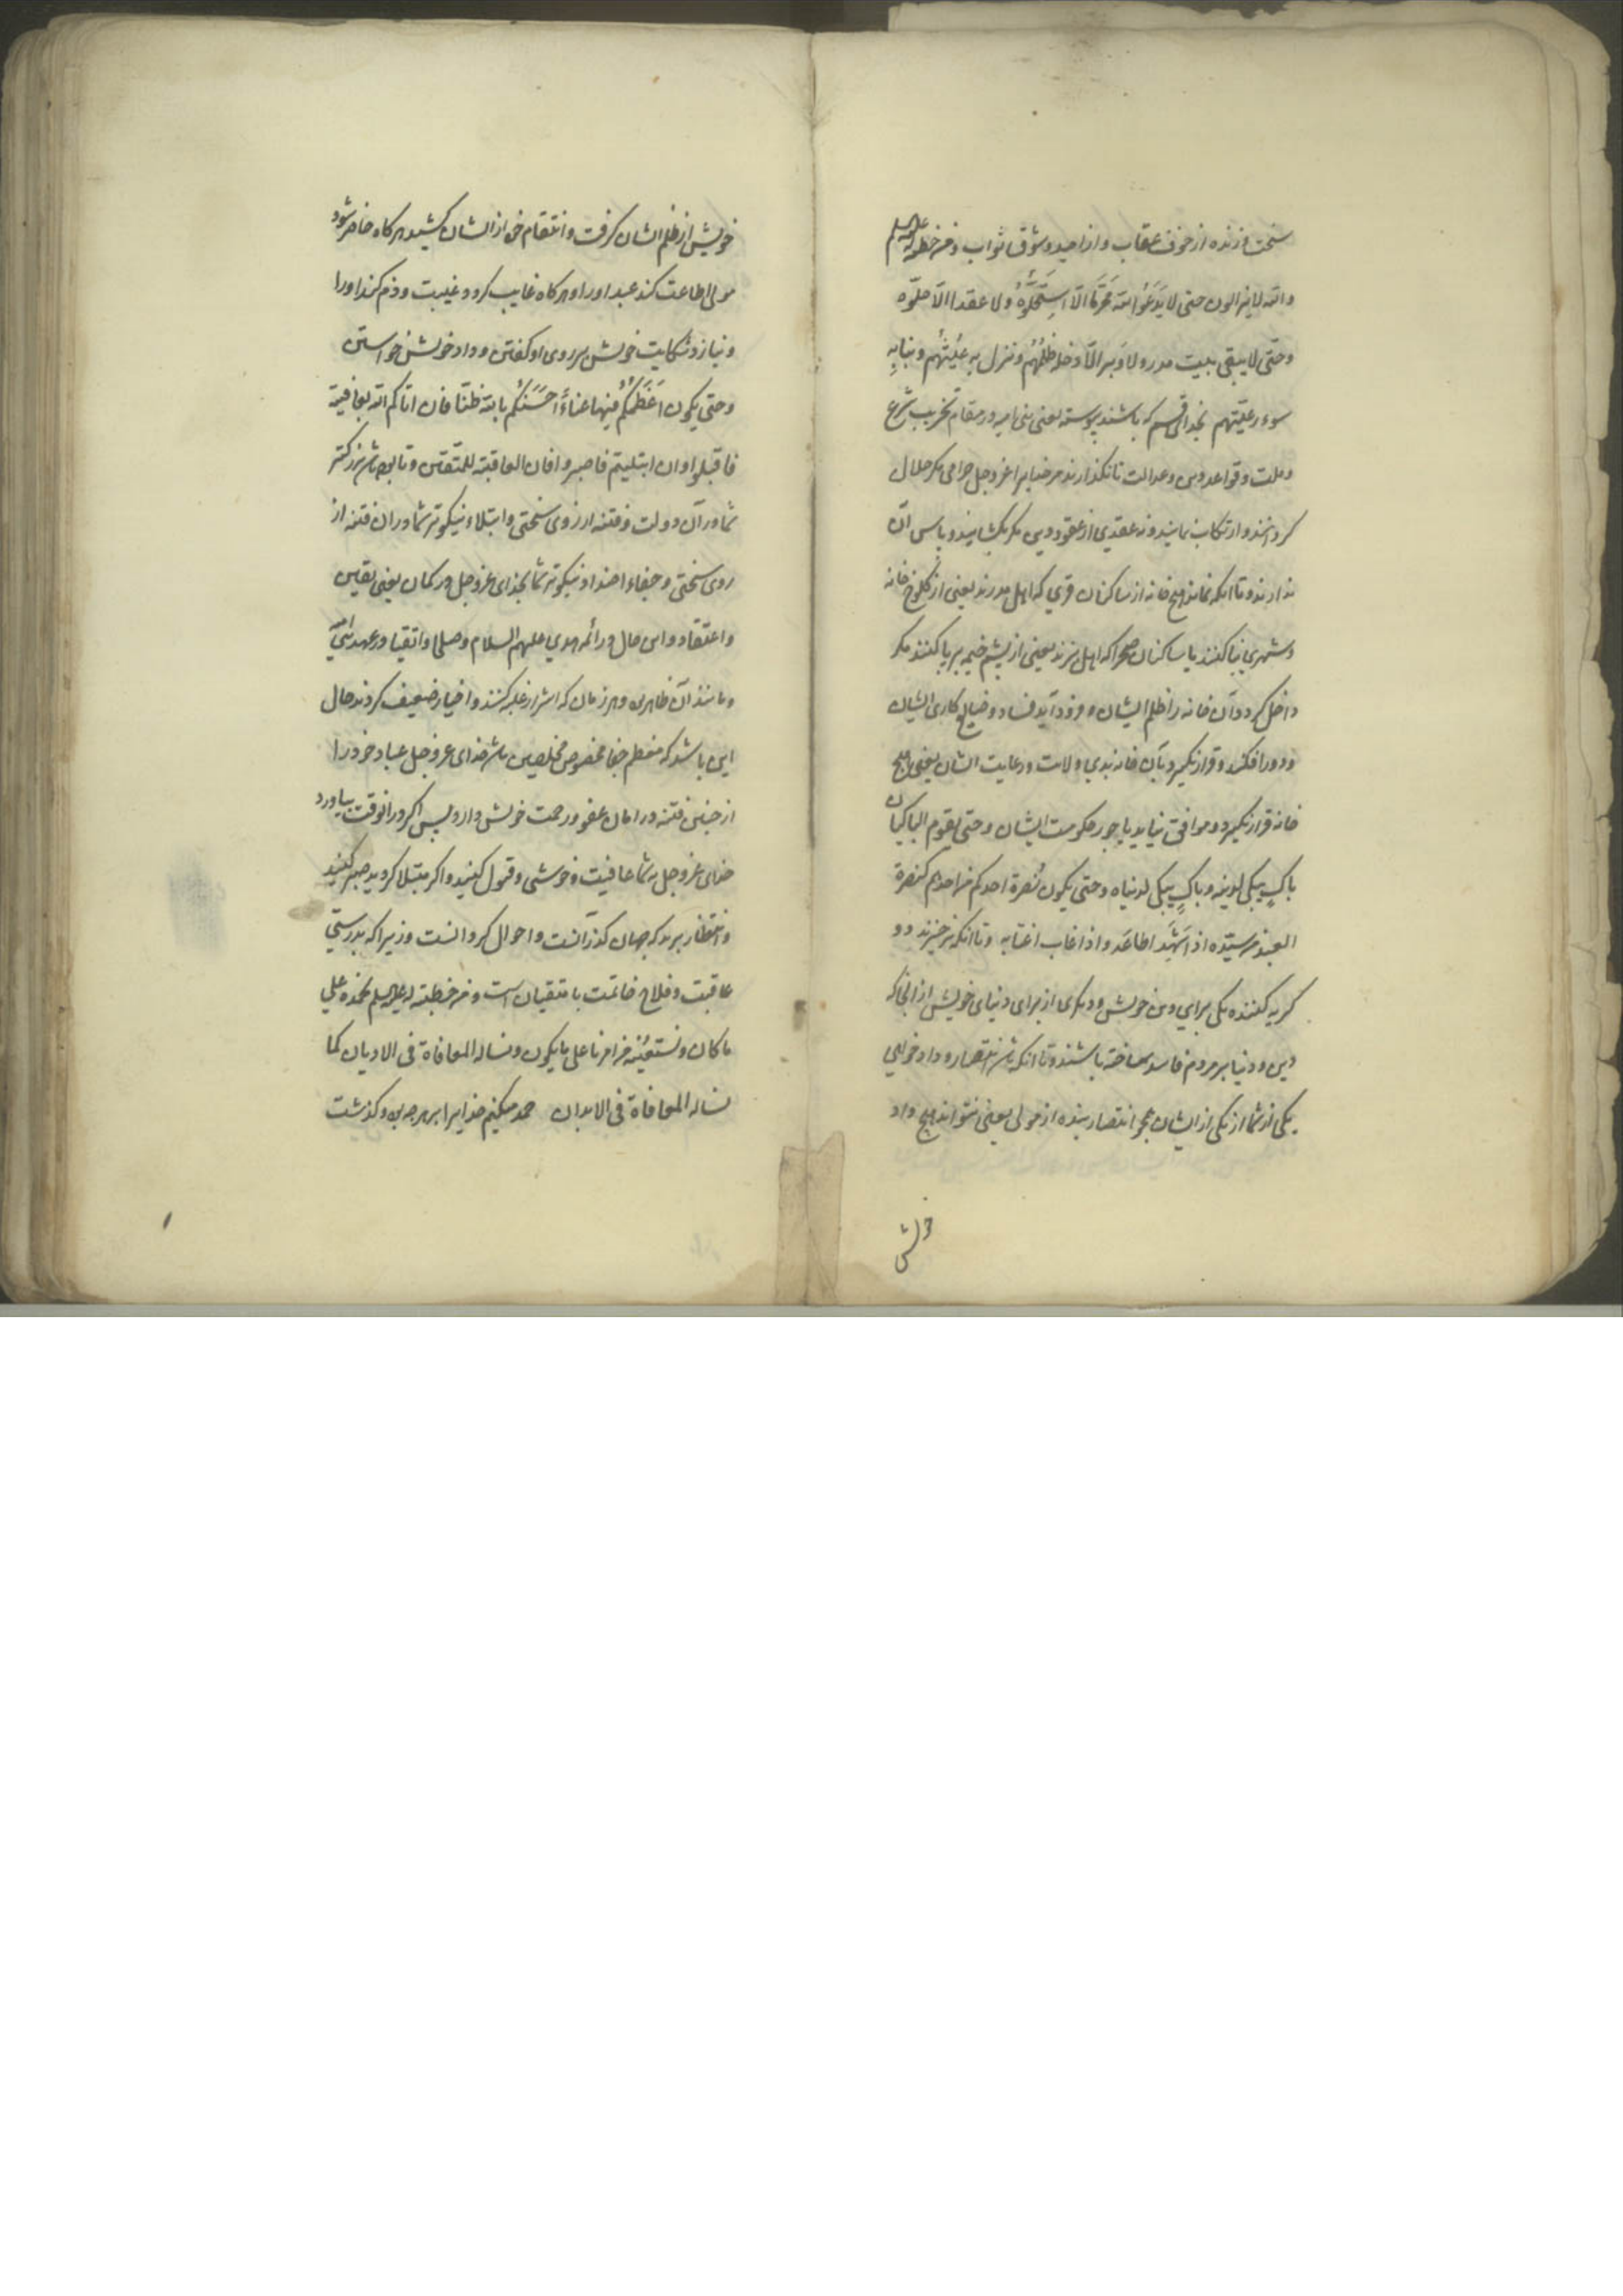 سخت وزنده از خوف عقاب و از امید و شوق ثواب و من خطبة له علیه السلم
والله لا یزالون حتی لا یدعوا لله محرما الا استحلوه ولا عقدا الا حلوه
و حتی لا یبقی بیت مدر ولا وبر الا دخله ظلمهم و نزل به عیثهم و نبا به
سوء رعیتهم بخدای قسم که باشند پیوسته یعنی بنی امیه در مقام تخریب شرع
و ملت و قواعد دین و عدالت تا نگذارند مر خدایرا عز و جل حرامی مگر حلال
گردانند و ارتکاب نمایند و نه عقدی از عقود دین مگر بگشایند و پاس آن
ندارند و تا آنکه نماند هیچ خانه از ساکنان قری که اهل مدرند یعنی از کلوخ خانه
و شهری بنا کنند یا ساکنان صحرا که اهل وبرند یعنی از پشم خیمه بر پا کنند مگر
داخل گردد آن خانه را ظلم ایشان و فرود آید فساد و ضایع کاری ایشان
و دور افکند و قرار نگیرد بآن خانه بدی ولایت و رعایت ایشان یعنی بر هیچ
خانه قرار نگیرد و موافق نیاید با جور حکومت ایشان و حتی یقوم الباکیان
باک یبکی لدینه و باک یبکی لدنیاه و حتی یکون نصرة احدکم من احدهم کنصرة
العبد من سیده اذا شهد اطاعه و اذا غاب اغتابه و تا آنکه برخیزند دو
گریه کننده یکی برای دین خویش و دیگری از برای دنیای خویش از آنجا که
دین و دنیا بر مردم فاسد ساخته باشند و تا آنکه باشد انتصار و داد خواهی
یکی از شما از یکی از ایشان همچو انتصار بنده از مولی یعنی نتواند هیچ داد
خویش
خویش از ظلم ایشان گرفت و انتقام خود از ایشان کشید هر گاه حاضر شود
مولی اطاعت کند عبد او را و هر گاه غایب گردد غیبت و ذم کند او را
و نیارد شکایت خویش بر روی او گفتن و داد خویش خواستن
و حتی یکون اعظمکم فیها عناء احسنکم بالله ظنا فان اتاکم الله بعافیة
فاقبلوا و ان ابتلیتم فاصبروا فان العاقبة للمتقین و تا بوده باشد بزرگتر
شما در آن دولت و فتنه از روی سختی و ابتلاء نیکوتر شما در آن فتنه از
روی سختی و جفاء اضداد نیکوتر شما بخدای عز و جل در گمان یعنی یقین
و اعتقاد و این حال در ائمه هدی علیهم السلام و صلحا و اتقیا در عهد بنی امیه
و مانند آن ظاهر بود هر زمان که اشرار غلبه کنند و اخیار ضعیف گردند حال
این باشد که معظم جفا مخصوص مخلصین باشد خدای عز و جل عباد خود را
از چنین فتنه در امان عفو و رحمت خویش دارد پس اگر در آنوقت بیاورد
خدای عز و جل به شما عافیت و خوشی و قبول کنید و اگر مبتلا گردید صبر کنید
و انتظار برید که جهان گذرانست و احوال گردانست و زیرا که بدرستی
عاقبت و فلاح خاتمت با متقیان است و من خطبة له علیه السلم نحمده علی
ما کان و نستعینه من امرنا علی ما یکون و نساله المعافاة فی الادیان کما
نساله المعافاة فی الابدان حمد میکنیم خدایرا بر هر چه بود و گذشت